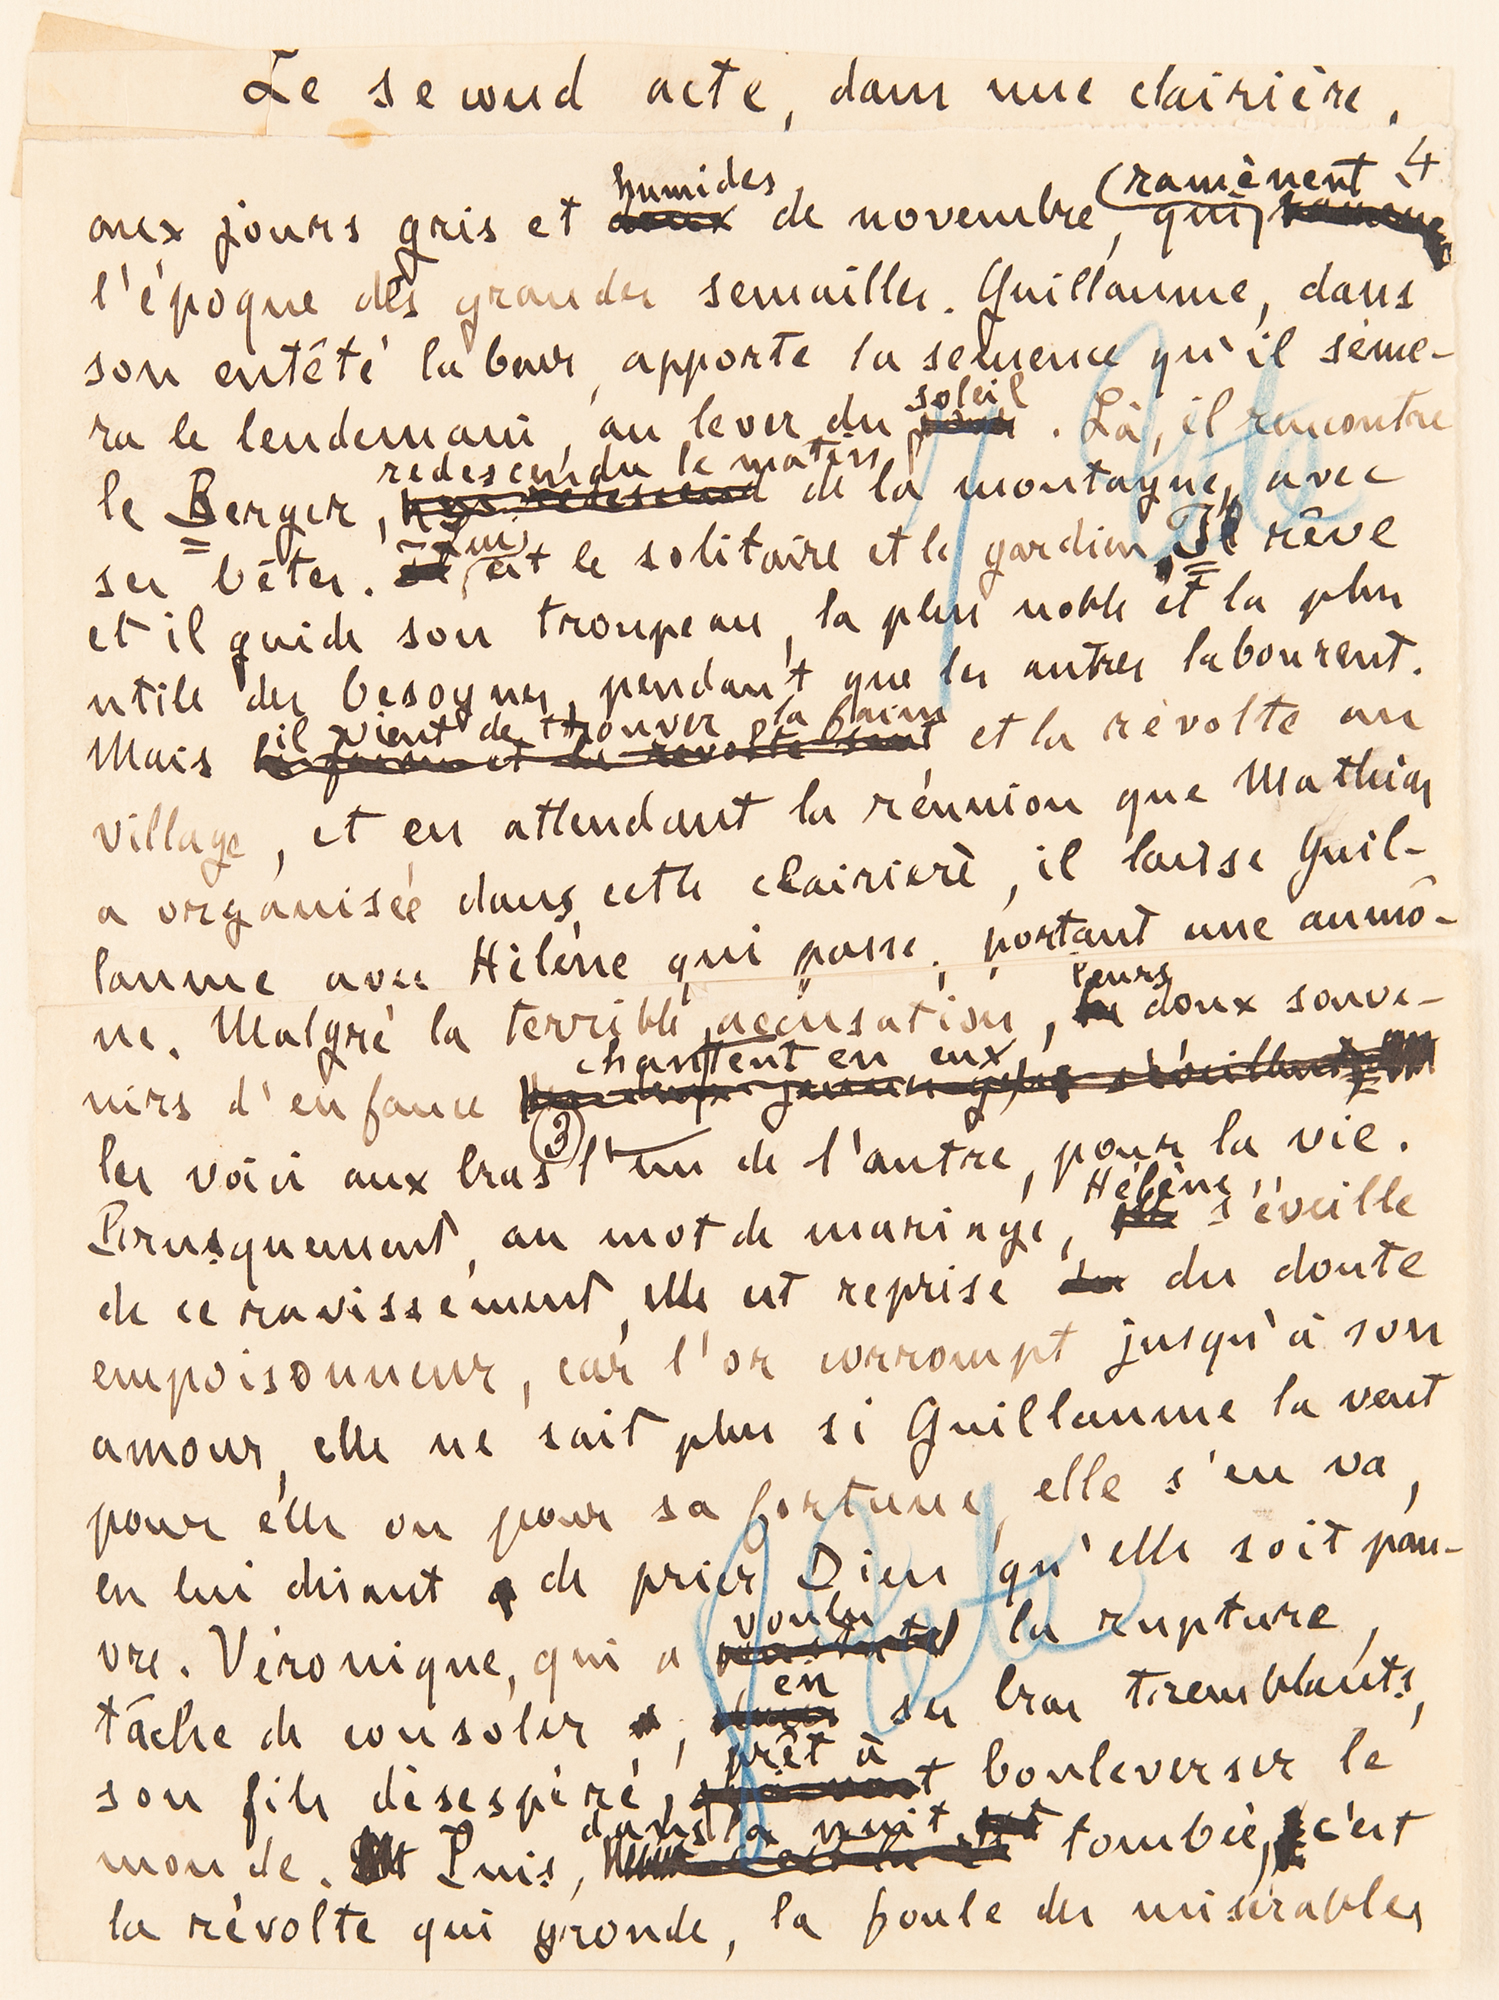 Le second acte, dans une clairière,
4
humides (ramènent
aux jours gris et doux de novembre, qui
l'époque des grandes semailles. Guillaume, dans
son entêté labeur, apporte la semence qu'il sème-
soleil
ra le lendemain, au lever du jour. Là, il rencontre
redescendu le matin
le Berger, redescend de la montagne, avec
ses bêtes. est le solitaire et le gardien, Il rêve
et il guide son troupeau, la plus noble et la plus
utile des besognes, pendant que les autres labourent.
il vient de trouver la faim
Mais la faim et la révolte sont et la révolte au
village, et en attendant la réunion que Mathias
a organisée dans cette clairière, il laisse Guil-
laume avec Hélène qui passe, portant une aumô-
leurs
ne. Malgré la terrible accusation, les doux souve-
chantent en eux,
nirs d'enfance s'éveillent
3
les voici aux bras l'un de l'autre, pour la vie.
Hélène
Brusquement, au mot de mariage, elle s'éveille
de ce ravissement, elle est reprise du doute
empoisonneur, car l'or corrompt jusqu'à son
amour, elle ne sait plus si Guillaume la veut
pour elle ou pour sa fortune, elle s'en va,
en lui disant de prier Dieu qu'elle soit pau-
voulu
vre. Véronique, qui a la rupture,
en
tâche de consoler, dans ses bras tremblants,
prêt à
son fils désespéré, bouleverser le
dans la nuit
monde. Puis, tombée, c'est
la révolte qui gronde, la foule des misérables